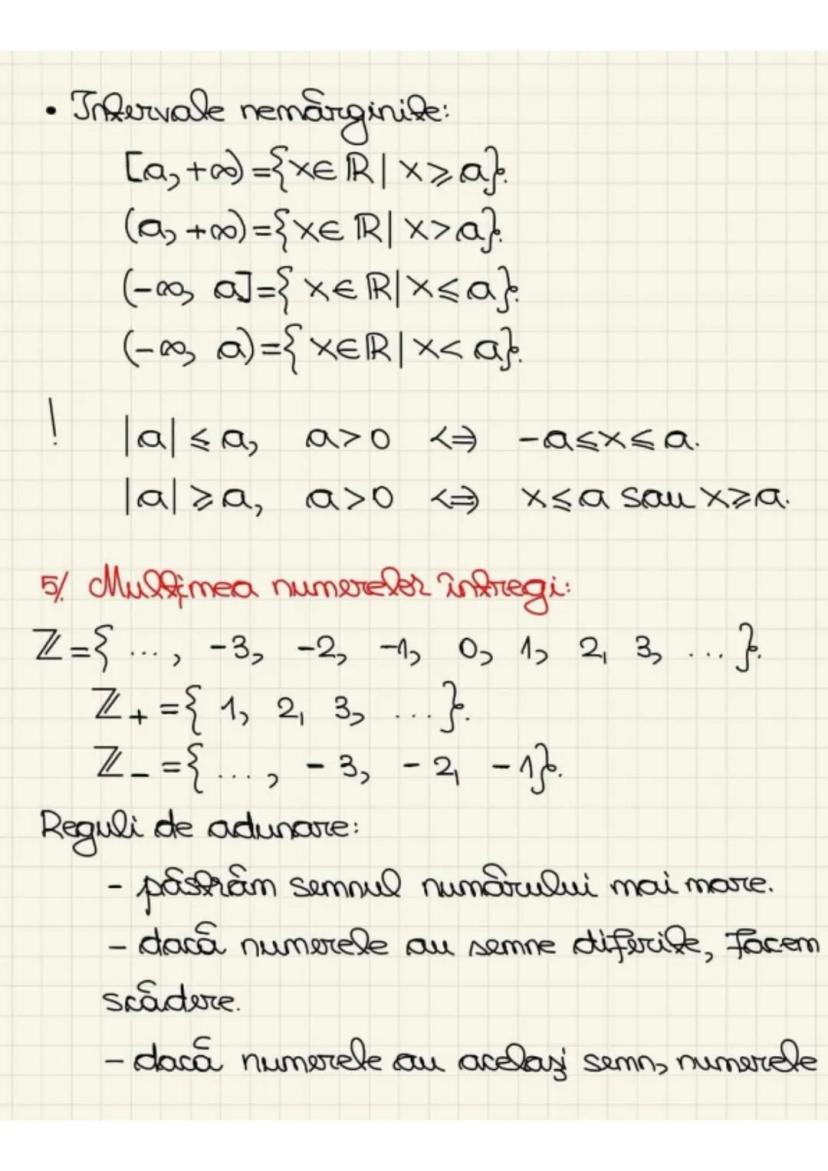 • Intervale nemărginite:
[a, +∞) = {x∈ℝ | x ≥ a}.
(a, +∞) = {x∈ℝ | x > a}.
(-∞, a] = {x∈ℝ | x ≤ a}.
(-∞, a) = {x∈ℝ | x < a}.
! |a| ≤ a, a > 0 <=> -a ≤ x ≤ a.
|a| ≥ a, a > 0 <=> x ≤ a sau x ≥ a.
5/ Mulțimea numerelor întregi:
ℤ = { ..., -3, -2, -1, 0, 1, 2, 3, ... }.
ℤ₊ = { 1, 2, 3, ... }.
ℤ₋ = { ..., -3, -2, -1}.
Reguli de adunare:
- păstrăm semnul numărului mai mare.
- dacă numerele au semne diferite, facem
scădere.
- dacă numerele au același semn, numerele